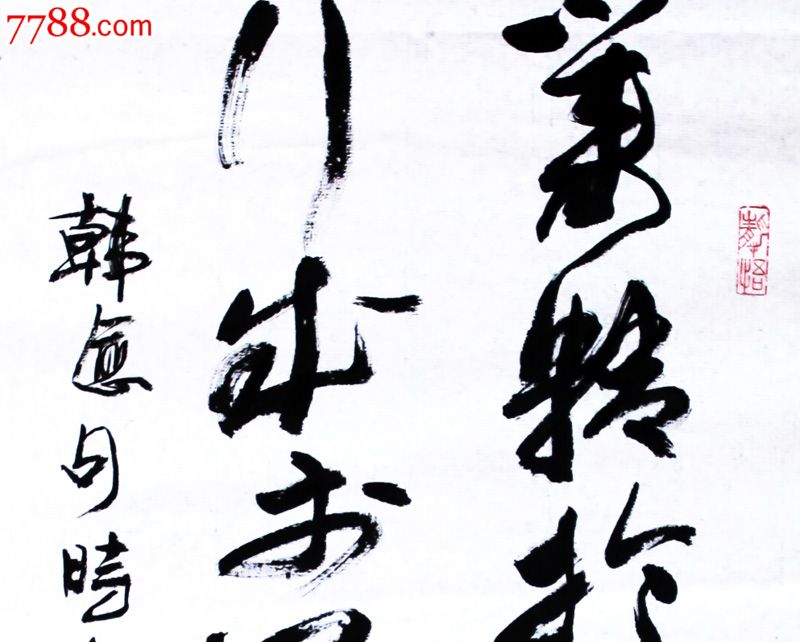 7788.com
業精於
行成於
韓愈句時